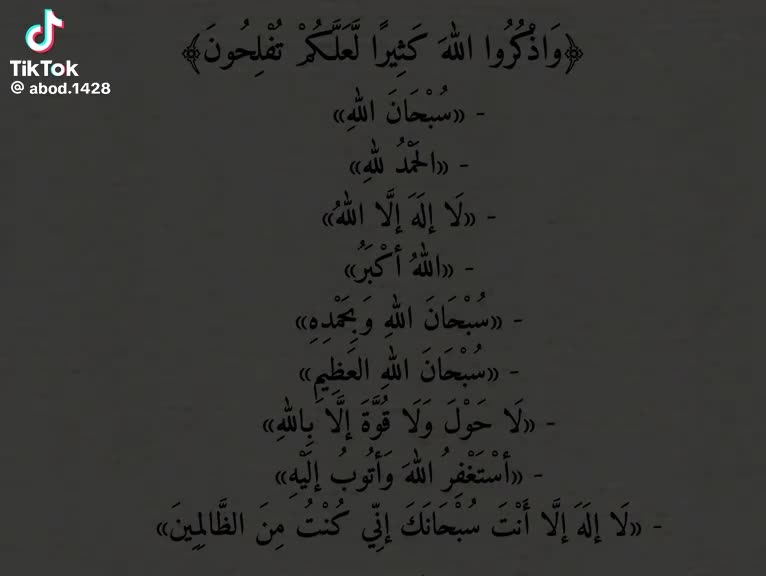 TikTok
@ abod.1428
﴿وَاذْكُرُوا اللهَ كَثِيرًا لَّعَلَّكُمْ تُفْلِحُونَ﴾
- «سُبْحَانَ اللهِ»
- «الحَمْدُ للهِ»
- «لَا إِلَهَ إِلَّا اللهُ»
- «اللهُ أَكْبَرُ»
- «سُبْحَانَ اللهِ وَبِحَمْدِهِ»
- «سُبْحَانَ اللهِ العَظِيمِ»
- «لَا حَوْلَ وَلَا قُوَّةَ إِلَّا بِاللهِ»
- «أَسْتَغْفِرُ اللهَ وَأَتُوبُ إِلَيْهِ»
- «لَا إِلَهَ إِلَّا أَنْتَ سُبْحَانَكَ إِنِّي كُنْتُ مِنَ الظَّالِمِينَ»